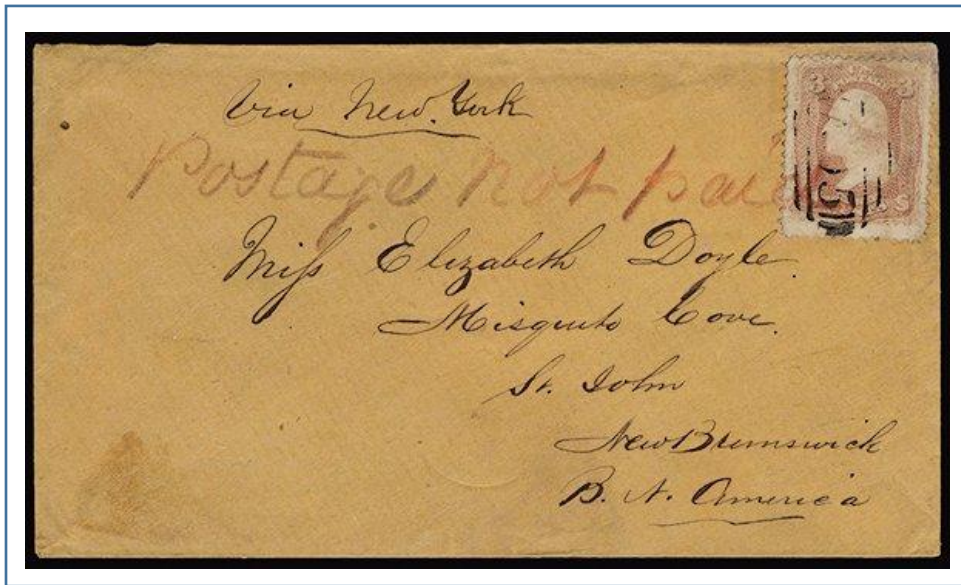 Via New. York
Postage not paid
Miss Elizabeth Doyle.
Misquito Cove.
St. John
New Brunswick
B. N. America